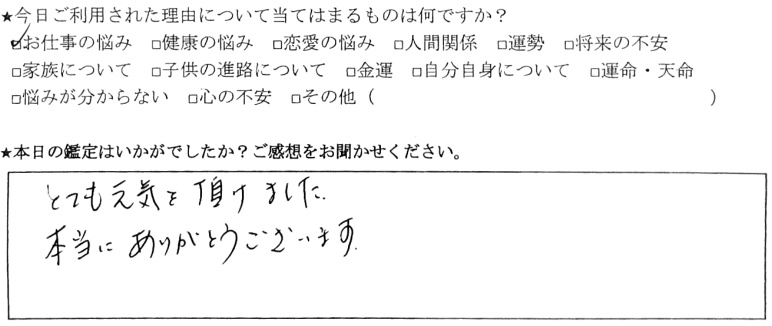 ★今日ご利用された理由について当てはまるものは何ですか？
☑お仕事の悩み □健康の悩み □恋愛の悩み □人間関係 □運勢 □将来の不安
□家族について □子供の進路について □金運 □自分自身について □運命・天命
□悩みが分からない □心の不安 □その他（　　　　　　　　　　　　　　　　　　）
★本日の鑑定はいかがでしたか？ご感想をお聞かせください。
とても元気を頂けました.
本当にありがとうございます.